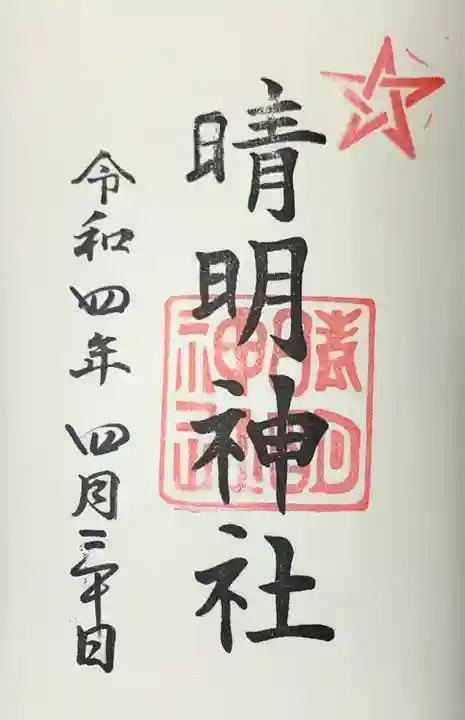 晴明神社
晴明
神社
令和四年 四月三十日